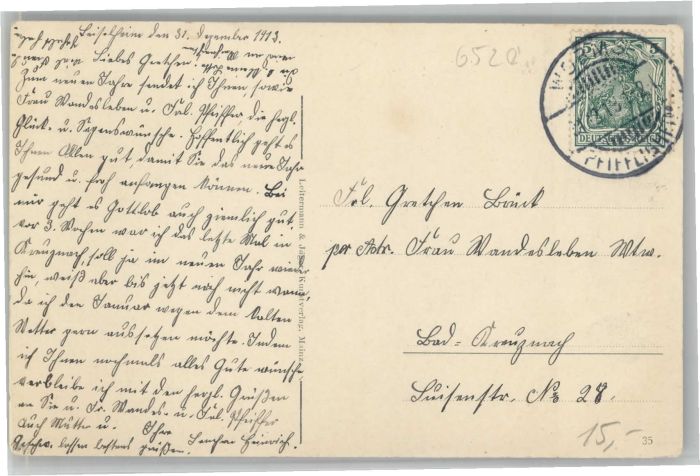 Leiselheim den 31. Dezember 1913.
Liebes Gretchen
Zum neuen Jahre sendet ich Ihnen, sowie
Frau Wandesleben u. Frl. Pfeiffer, die herzl.
Glück- u. Segenswünsche. Hoffentlich geht es
Ihnen Allen gut, damit Sie das neue Jahr
gesund u. froh anfangen können. Bei
mir geht es Gottlob auch ziemlich gut,
vor 3. Wochen war ich das letzte Mal in
Kreuznach, soll ja im neuen Jahr wieder
hin, weiß aber bis jetzt noch nicht wann,
da ich den Januar wegen dem kalten
Wetter gern aussetzen möchte. Indem
ich Ihnen nochmals alles Gute wünsche
verbleibe ich mit den herzl. Grüßen
an Sie u. Fr. Wandes- u. Frl. Pfeiffer
auch Mutter u. Ihre
Geschw. lassen bestens grüßen. Lenchen Heinrich.
Leitermann & Kunstverlag, Mainz
6520
DEUTSCHES REICH
PFIFFLIGHEIM
Frl. Gretchen Brück
per Adr. Frau Wandesleben Wtw.
Bad-Kreuznach
Luisenstr. No 28.
15,-
35